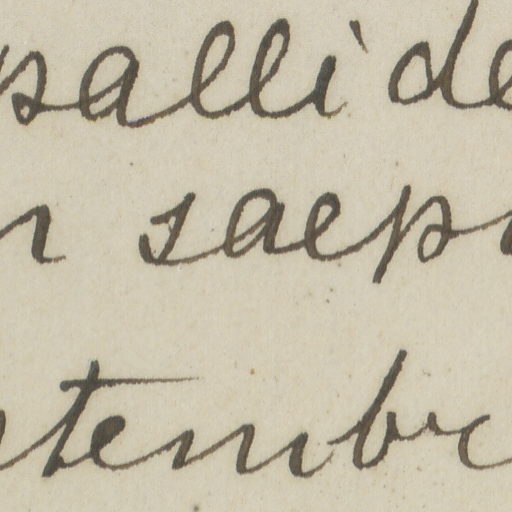 pallide
r saep
ptembr